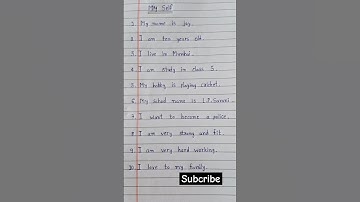 My Self
1. My name is Jay.
2. I am ten years old.
3. I live in Mumbai.
4. I am study in class 5.
5. My hobby is playing cricket.
6. My school name is
7. I want to become a police.
8. I am very strong and fit.
9. I am very hard working.
10. I love to my family.
Subcribe